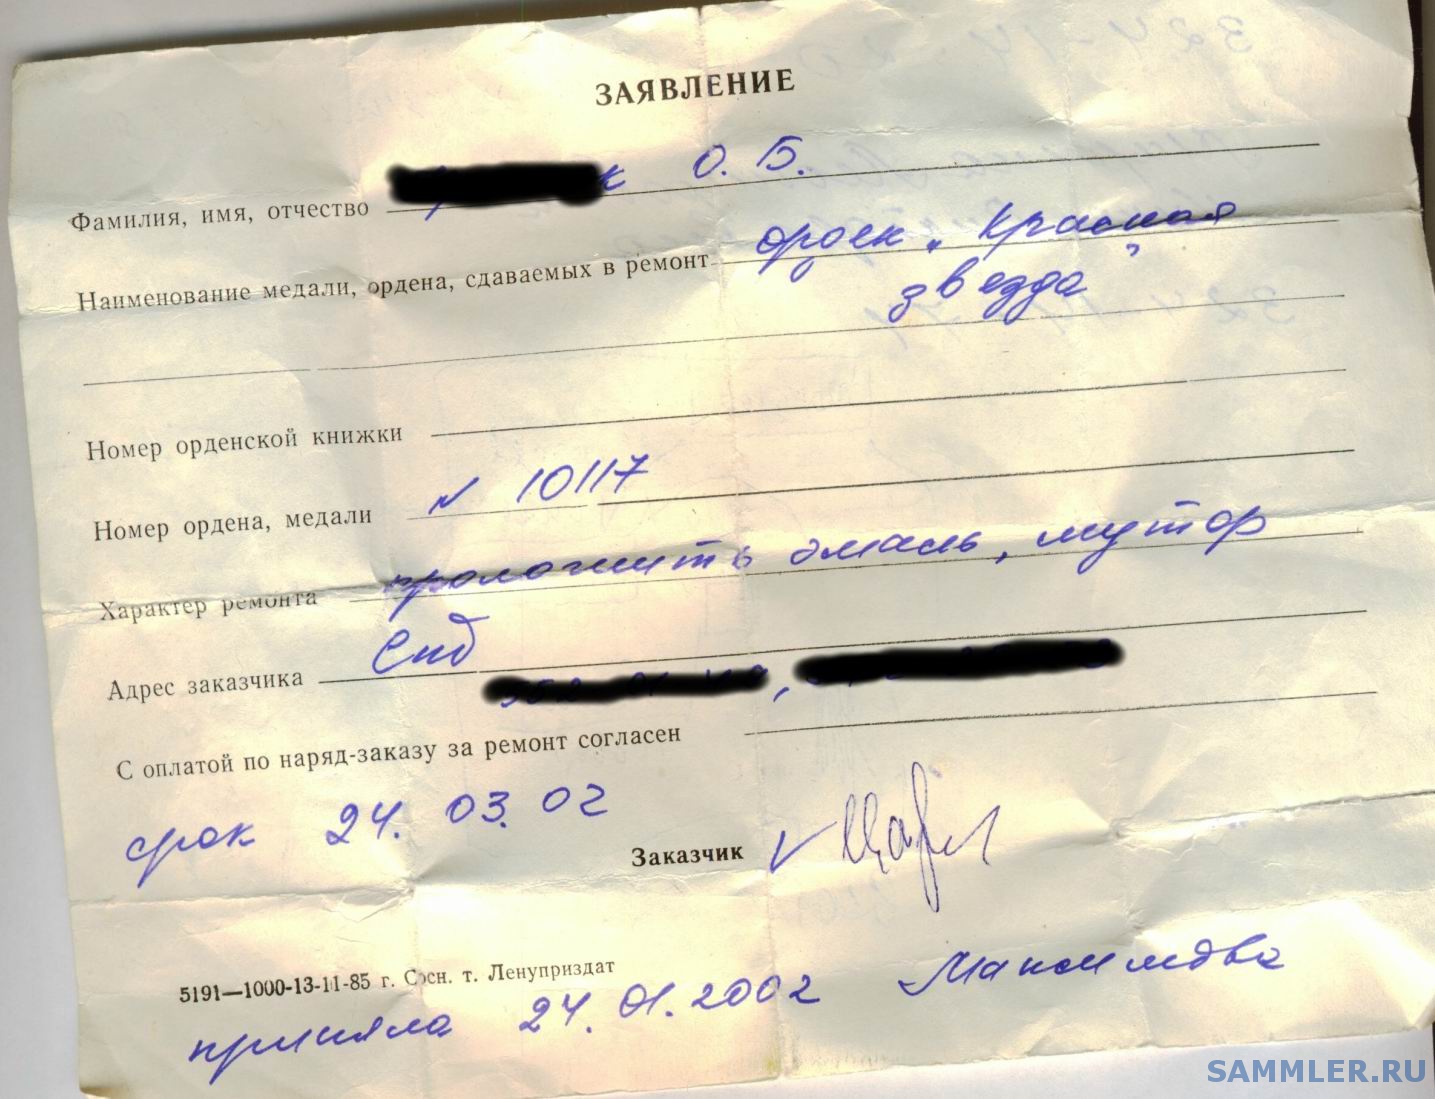 ЗАЯВЛЕНИЕ
Фамилия, имя, отчество к О. Б.
Наименование медали, ордена, сдаваемых в ремонт орден „Красная
звезда"
Номер орденской книжки
Номер ордена, медали № 10117
Характер ремонта проложить эмаль, штур
Адрес заказчика Спб
С оплатой по наряд-заказу за ремонт согласен
срок 24. 03. 02
Заказчик
5191—1000-13-11-85 г. Сосн. т. Ленуприздат
приняла 24. 01. 2002 Максимова
SAMMLER.RU